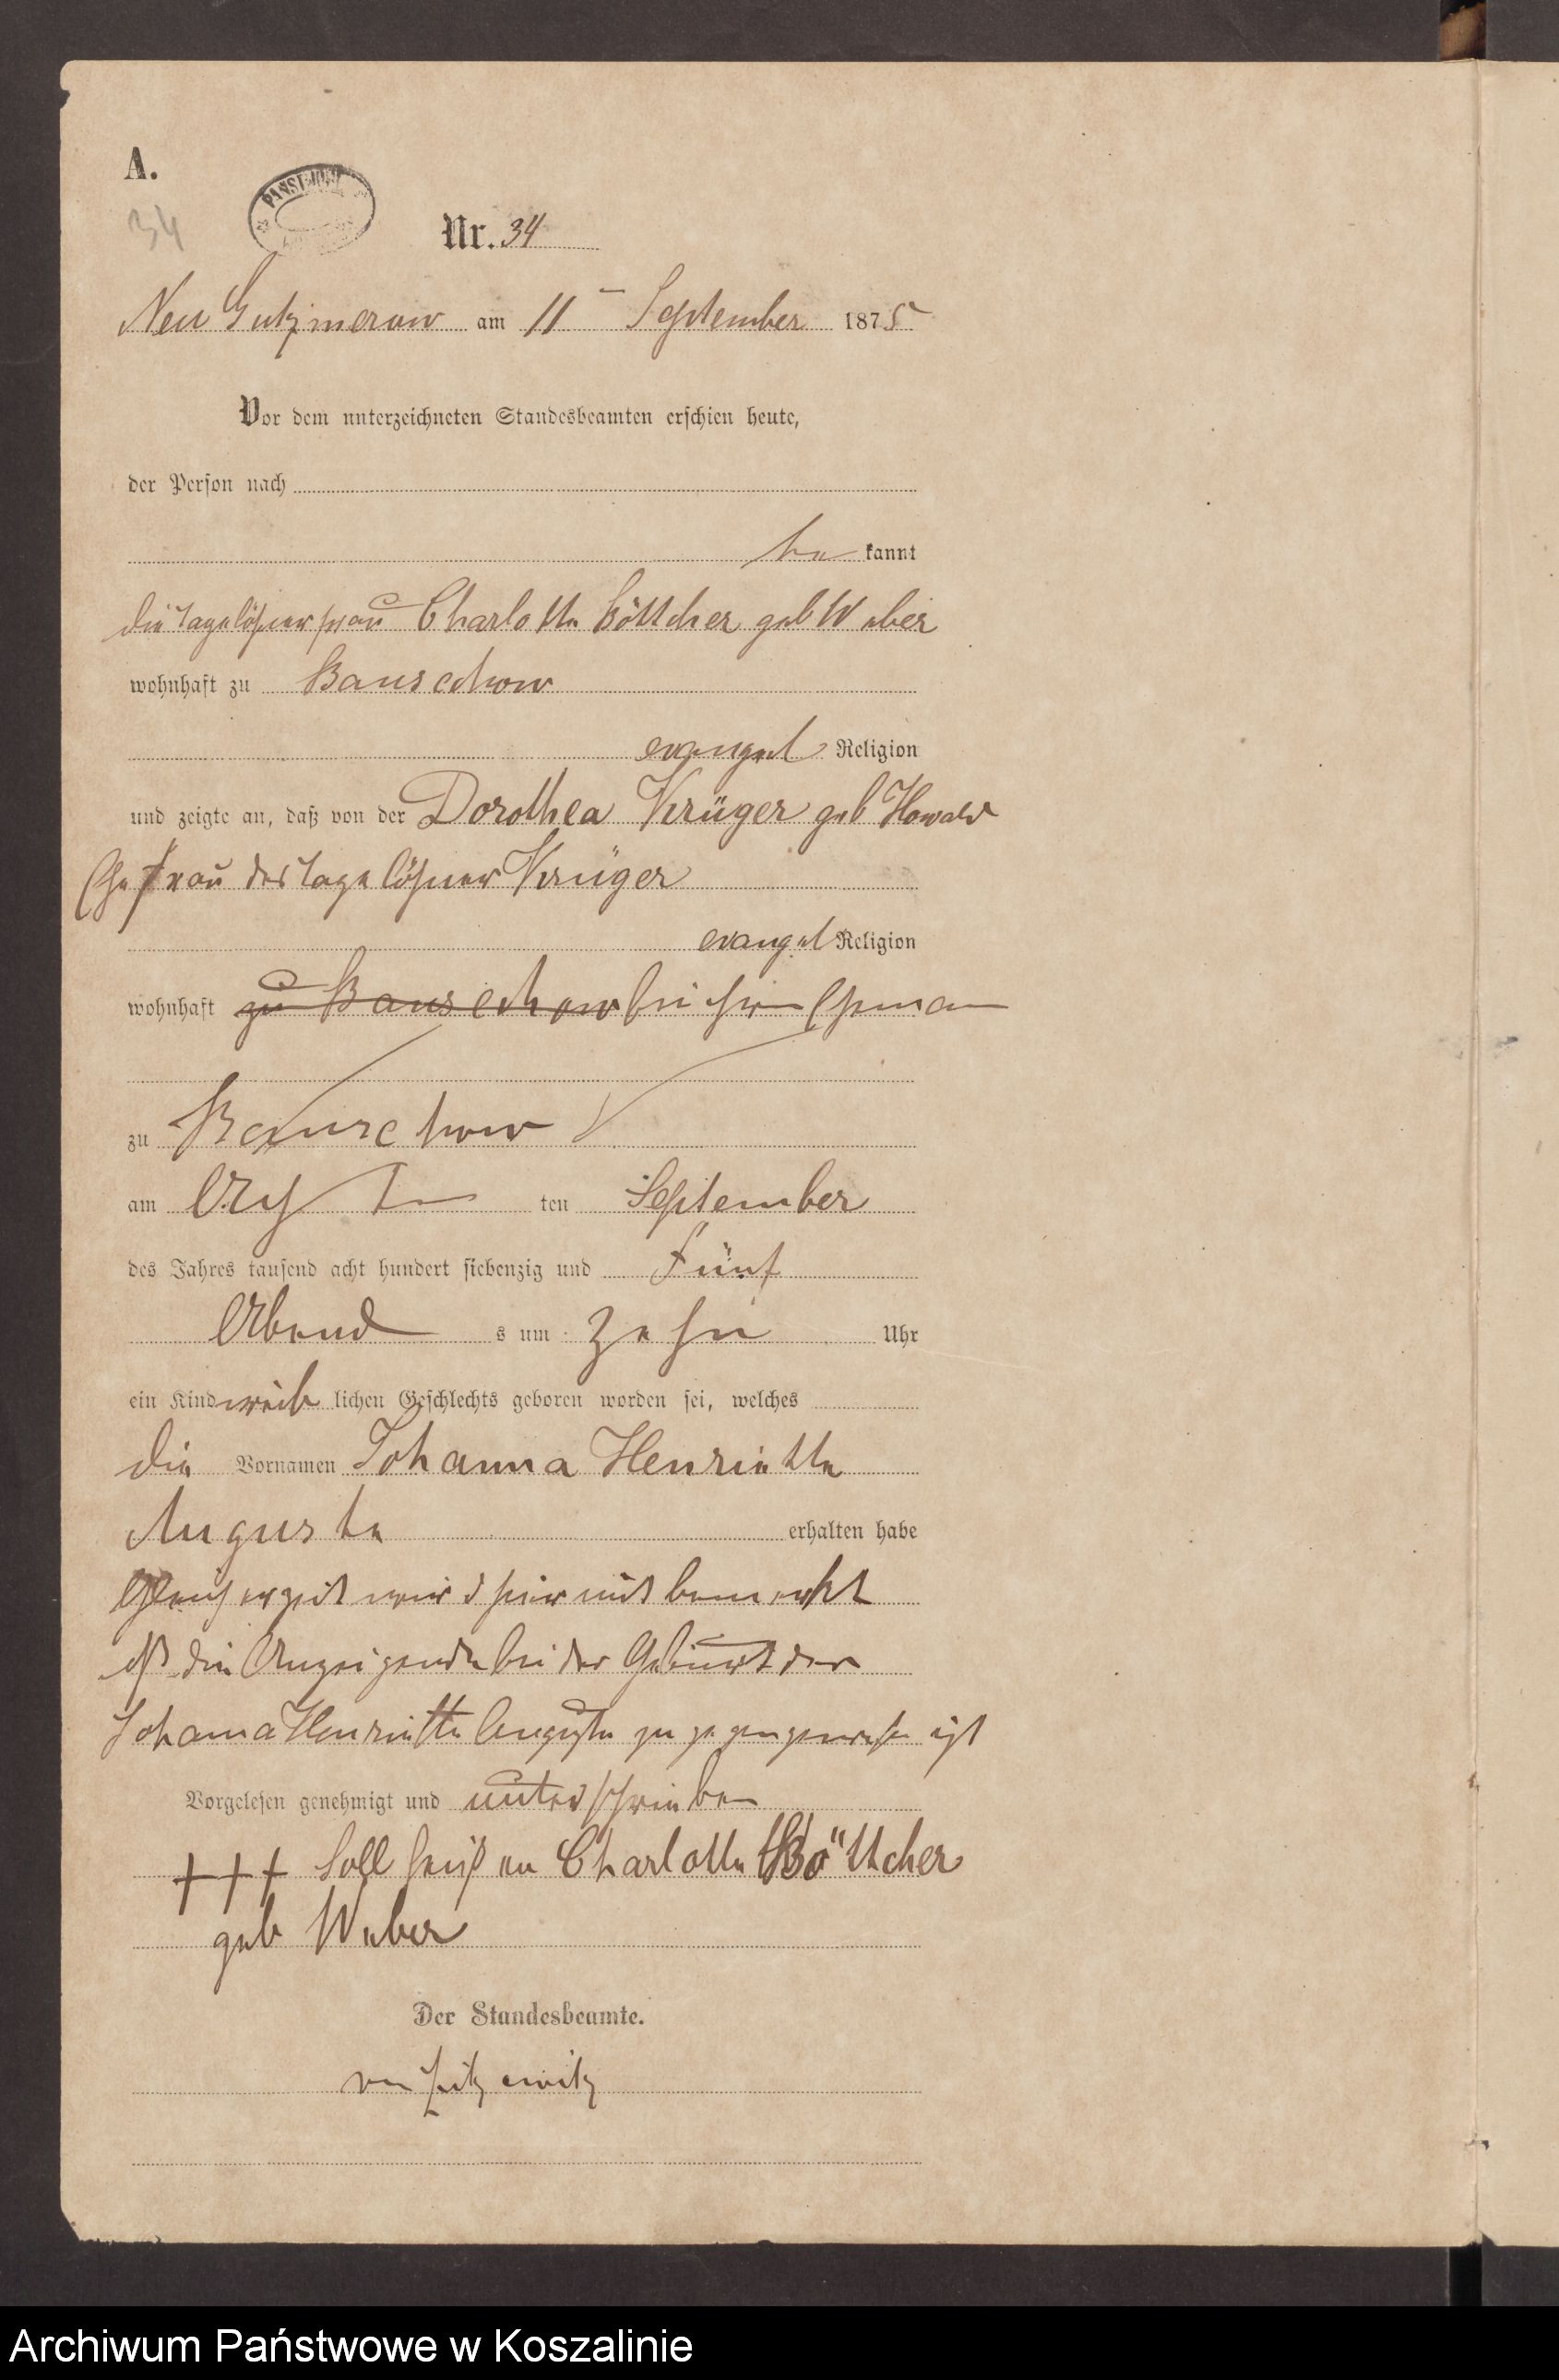 A.
34
Nr. 34
Neu Gutzmerow am 11 September 1875
Vor dem unterzeichneten Standesbeamten erschien heute,
der Person nach
be kannt
die Tagelöhnerfrau Charlotte Böttcher geb Weber
wohnhaft zu Banschow
evangel Religion
und zeigte an, daß von der Dorothea Krüger geb Howald
Ehefrau des Tagelöhner Krüger
evangel Religion
wohnhaft zu Banschow bei ihrem Ehemann
zu Banschow
am Achten ten September
des Jahres tausend acht hundert siebenzig und Fünf
Abend s um Zehn Uhr
ein Kind weib lichen Geschlechts geboren worden sei, welches
die Vornamen Johanna Henriette
Auguste erhalten habe
wird hiermit bemerkt
die Anzeigende bei der Geburt der
Johanna Henriette Auguste zugegen gewesen ist
Vorgelesen genehmigt und unterschrieben
+++ soll heißen Charlotte Böttcher
geb Weber
Der Standesbeamte.
von Zitzewitz
Archiwum Państwowe w Koszalinie